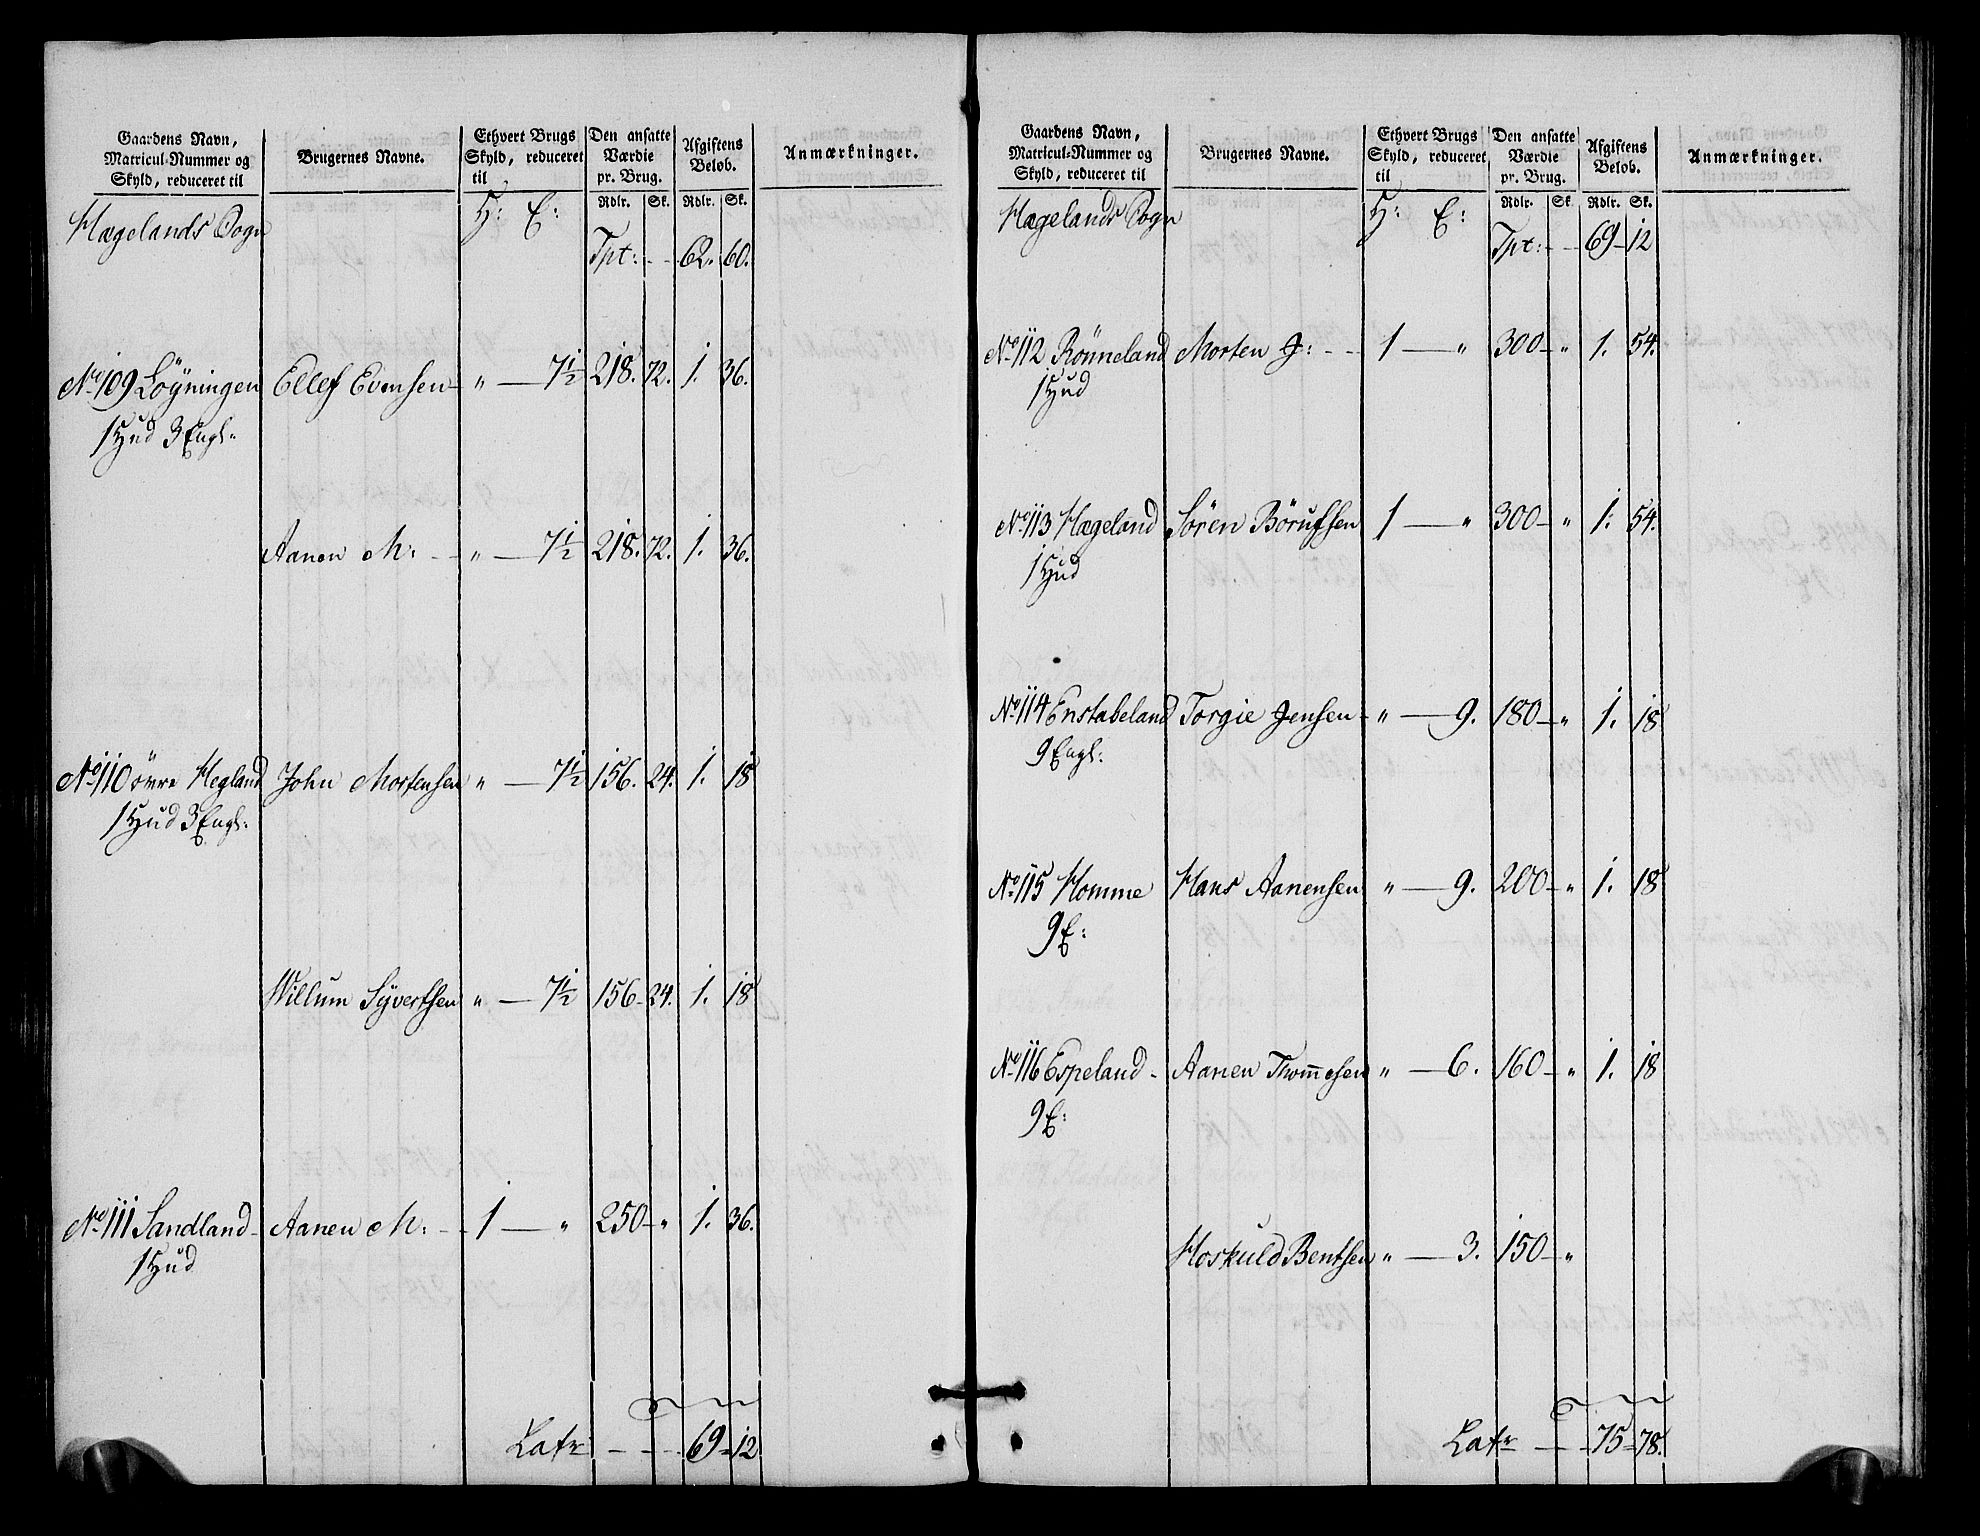 Gaardens Navn, Matricul-Nummer og Skyld, reduceret til | Brugernes Navne. | Ethvert Brugs Skyld, reduceret til | Den ansatte Værdie pr. Brug. | Afgiftens Beløb. | Anmærkninger.
Rdlr. Sk. Rdlr. Sk.
Hægelands Sogn H: E: Tpt: - - 62. 60.
No 109 Löyningen Ellef Evensen - " — 7½ 218. 72. 1. 36.
1 Hud 3 Engl.
Aanen M: - " — 7½ 218. 72. 1. 36.
No 110 övre Hegland John Mortensen " — 7½ 156. 24. 1. 18
1 Hud 3 Engl.
Willum Syvertsen " — 7½ 156. 24. 1. 18
No 111 Sandland - Aanen M: - - 1 — " 250 - " 1. 36.
1 Hud
Latr - - - 69 - 12
Gaardens Navn, Matricul-Nummer og Skyld, reduceret til | Brugernes Navne. | Ethvert Brugs Skyld, reduceret til | Den ansatte Værdie pr. Brug. | Afgiftens Beløb. | Anmærkninger.
Rdlr. Sk. Rdlr. Sk.
Hægelands Sogn H: E: Tpt: - - 69 - 12
No 112 Rönneland Morten J: - - 1 — " 300 - " 1. 54.
1 Hud
No 113 Hægeland Sören Börufsen 1 — " 300 - " 1. 54.
1 Hud
No 114 Enstabeland Torgie Jensen - " — 9. 180 - " 1. 18
9 Engl:
No 115 Homme Hans Aanensen " — 9. 200 - " 1. 18
9 E:
No 116 Espeland - Aanen Thommesen " — 6. 160 - " 1. 18
9 E:
Hoskuld Bentsen " — 3. 150 - "
Latr - - - 75 - 78.